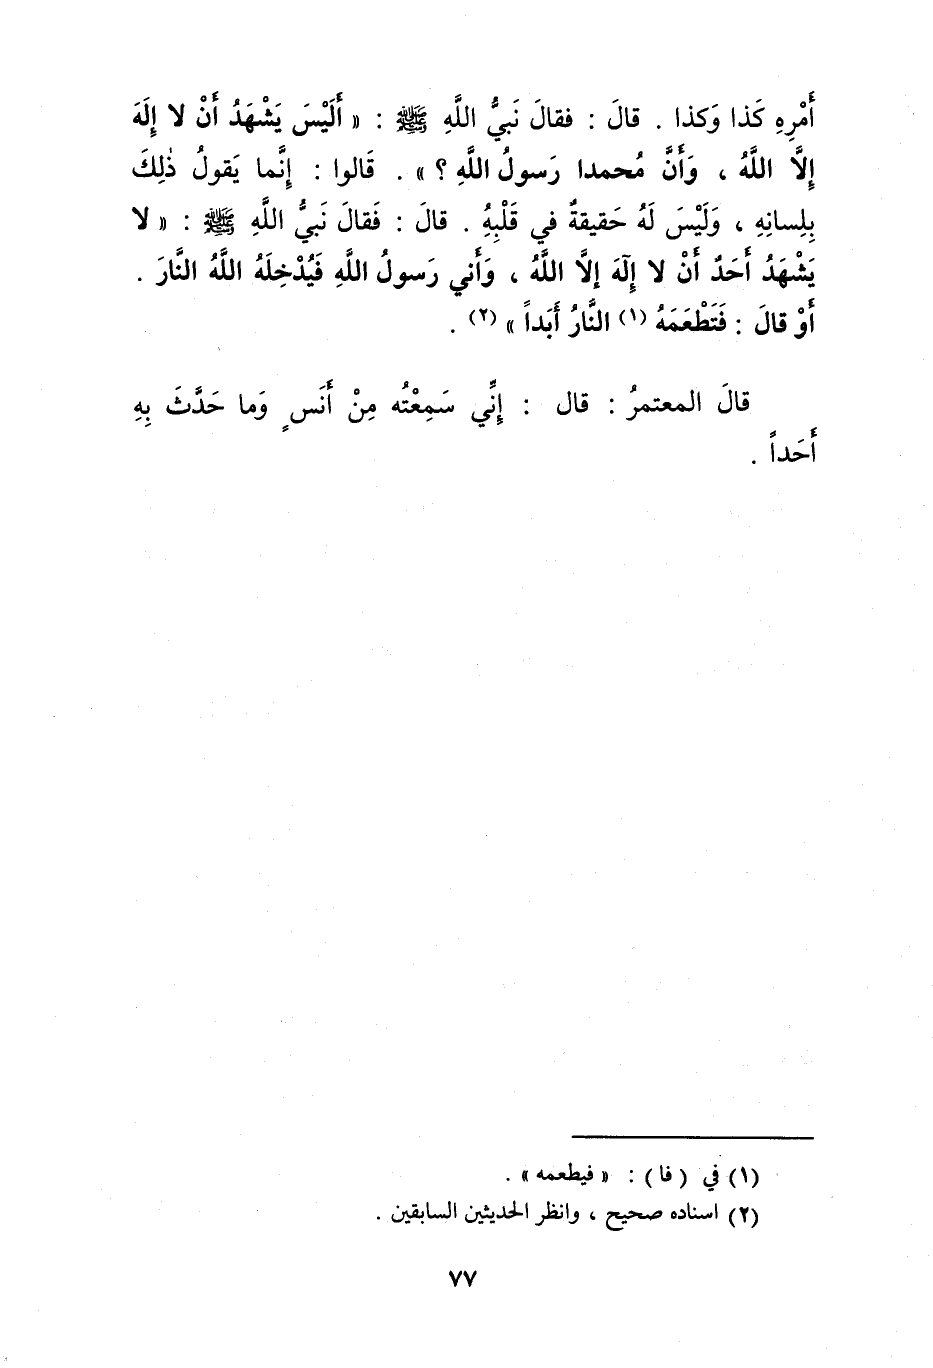 أَمْرِهِ كَذا وَكذا . قالَ : فقالَ نَبيُّ اللَّهِ ﷺ : « أَلَيْسَ يَشْهَدُ أَنْ لا إِلَهَ
إِلَّا اللَّهُ ، وَأَنَّ مُحمدا رَسولُ اللَّهِ ؟ » . قَالوا : إِنَّما يَقولُ ذٰلِكَ
بِلِسانِهِ ، وَلَيْسَ لَهُ حَقيقةٌ في قَلْبِهُ . قالَ : فَقالَ نَبيُّ اللَّهِ ﷺ : « لا
يَشْهَدُ أَحَدٌ أَنْ لا إِلَهَ إلَّا اللَّهُ ، وَأَني رَسولُ اللَّهِ فَيُدْخِلَهُ اللَّهُ النَّارَ .
أَوْ قالَ : فَتَطْعَمَهُ (١) النَّارُ أَبَداً » (٢) .
قالَ المعتمرُ : قال : إِنِّي سَمِعْتُه مِنْ أَنَسٍ وَما حَدَّثَ بِهِ
أَحَداً .
(١) في ( فا ) : « فيطعمه » .
(٢) اسناده صحيح ، وانظر الحديثين السابقين .
٧٧